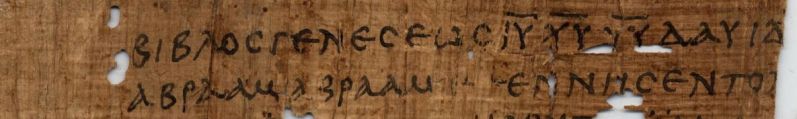 ΒΙΒΛΟϹ ΓΕΝΕϹΕΩϹ Ι̅Υ̅ Χ̅Υ̅ Υ̅Υ̅ ΔΑΥΙΔ
ΑΒΡΑΑΜ ΑΒΡΑΑΜ ΕΓΕΝΝΗϹΕΝ ΤΟΝ